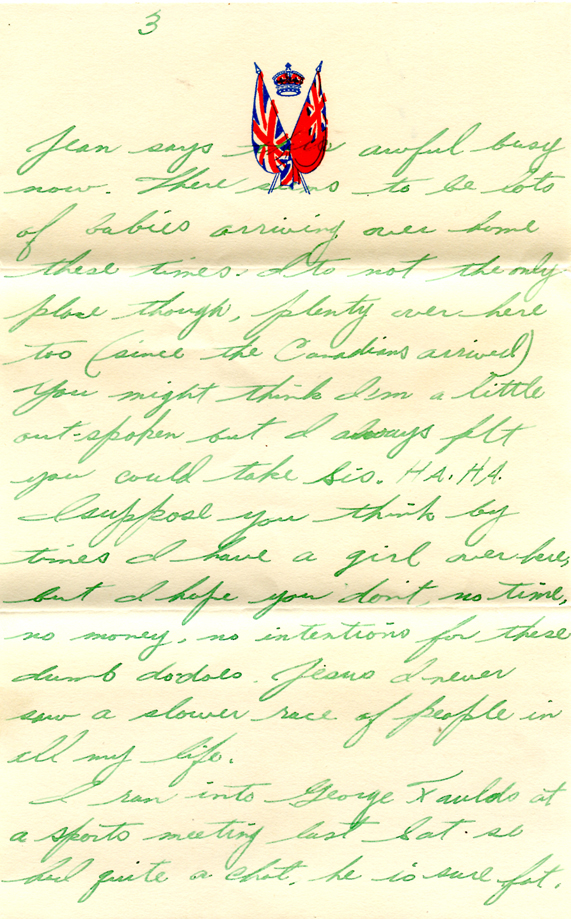 3
Jean says awful busy
now. There seems to be lots
of babies arriving over home
these times. Its not the only
place though, plenty over here
too (since the Canadians arrived)
You might think I'm a little
out-spoken but I always felt
you could take sis. HA. HA.
I suppose you think by
times I have a girl over here,
but I hope you don't, no time,
no money, no intentions for these
dumb dodoes. Jesus I never
saw a slower race of people in
all my life.
I ran into George Faulds at
a sports meeting last Sat. so
had quite a chat, he is sure fat.